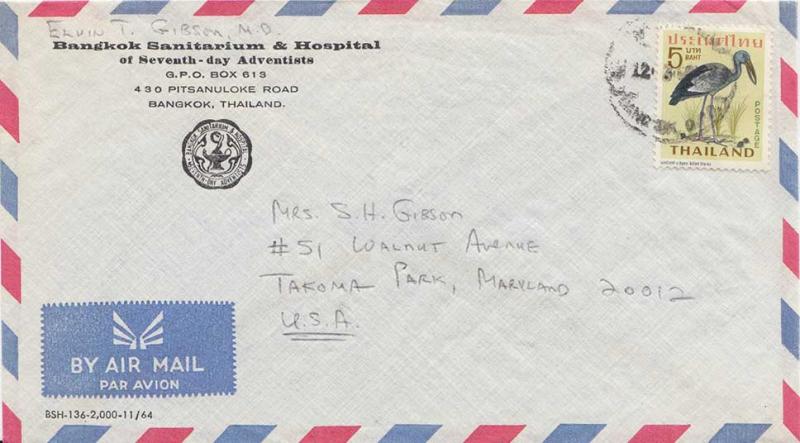 Elvin T. Gibson, M.D.
Bangkok Sanitarium & Hospital
of Seventh-day Adventists
G.P.O. BOX 613
430 PITSANULOKE ROAD
BANGKOK, THAILAND.
BANGKOK SANITARIUM & HOSPITAL
SEVENTH-DAY ADVENTISTS
ประเทศไทย
5 บาท
BAHT
POSTAGE
THAILAND
12
Mrs. S.H. Gibson
#51 Walnut Avenue
Takoma Park, Maryland 20012
U.S.A.
BY AIR MAIL
PAR AVION
BSH-136-2,000-11/64